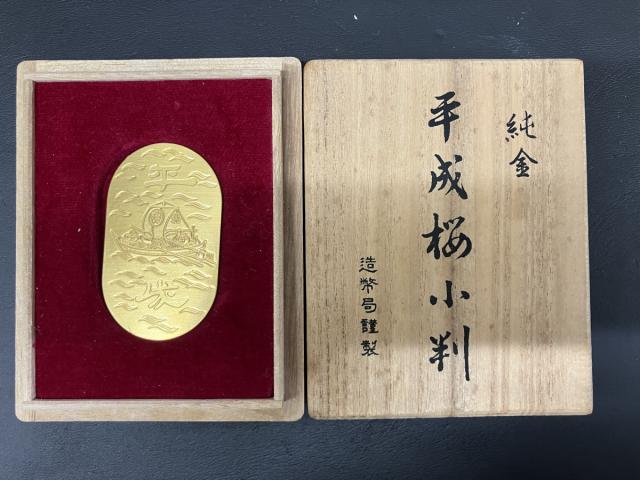 純金
平成桜小判
造幣局謹製
平
成